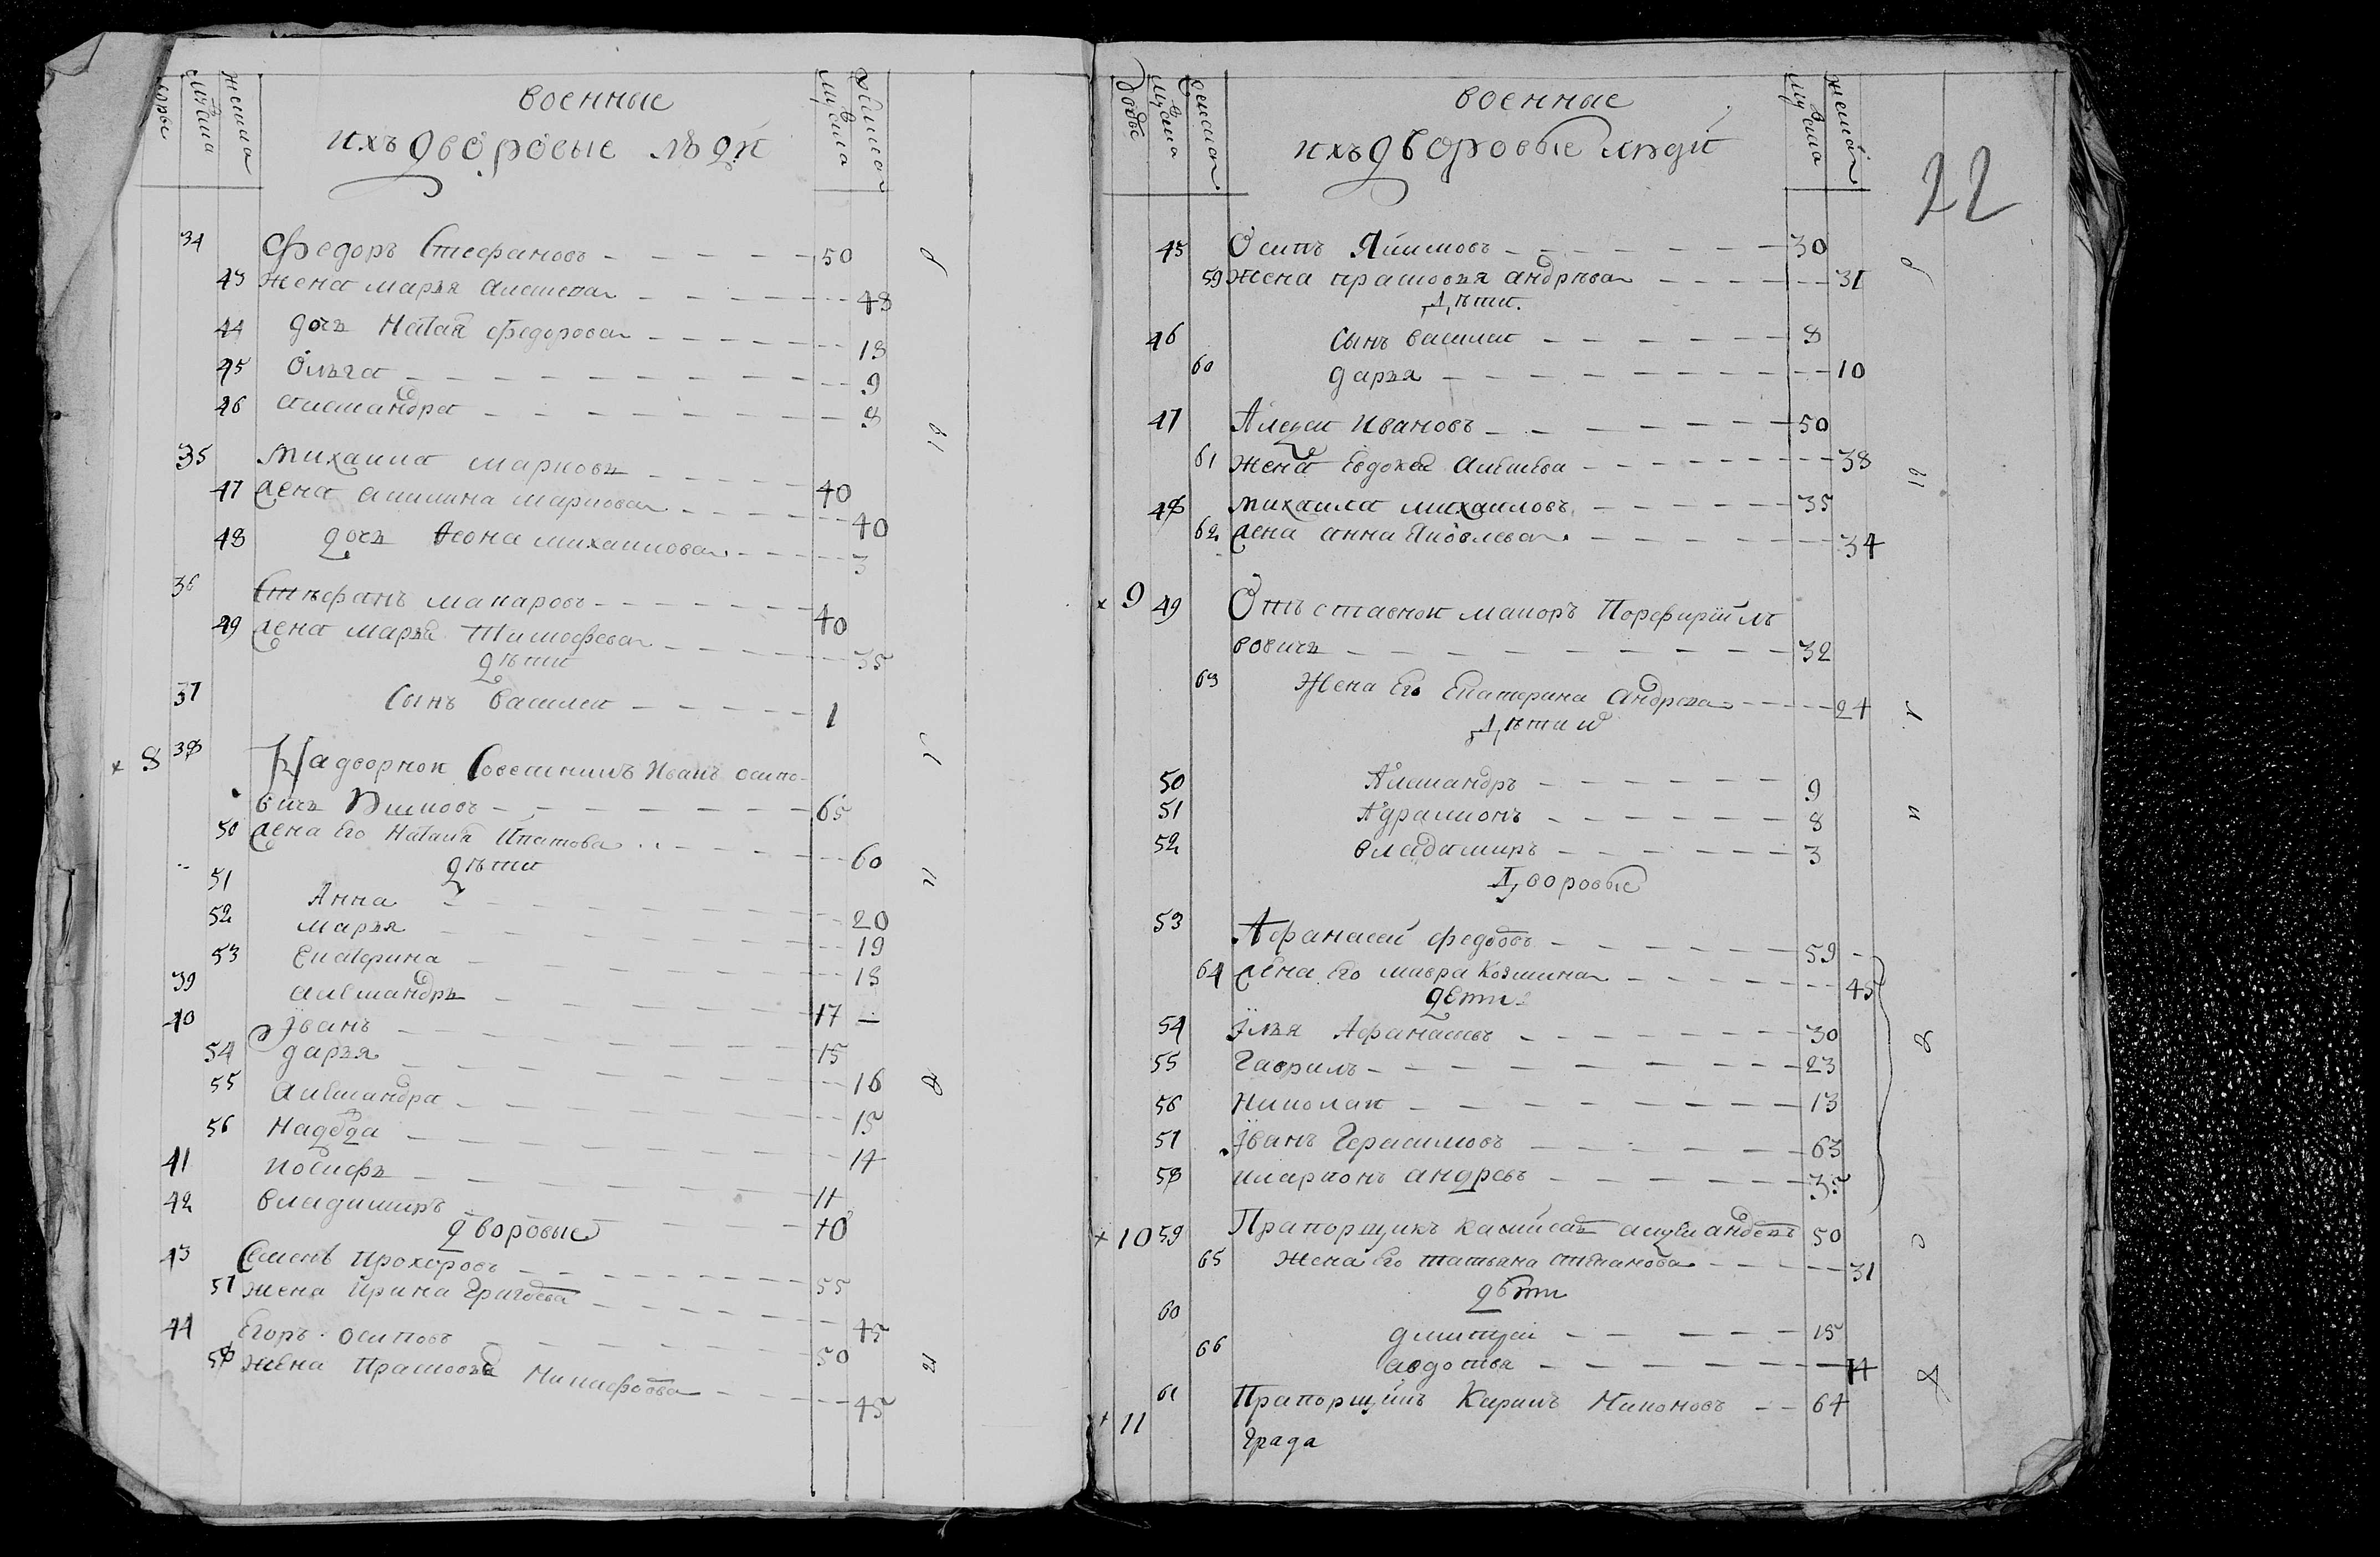 военные
ихъ дворовые люди
34 Федоръ Стефановъ 50
43 жена марья 48
44 дочь Наталя федорова 18
45 Ольга 9
46 александра 8
35 михаила марковъ 40
47 жена акилина маркова 40
48 дочь михаилова 3
36 Стефанъ макаровъ 40
49 жена марья Тимофеева 35
дѣти
37 Сынъ василеи 1
8 38 Надворнои Советникъ Иванъ осипо-
вичь 65
50 жена Его Наталя Ипатова 60
дѣти
51 Анна 20
52 марья 19
53 Екатерина 18
39 александръ 17
40 Іванъ 15
54 дарья 16
55 александра 15
56 Надежда 14
41 иосифъ 11
42 владимиръ 10
дворовые
43 Семенъ прохоровъ 55
57 жена Ирина Григорева 45
44 Егоръ осиповъ 50
58 жена Прасковя Никифорова 45
22
военные
ихъ дворовые люди
45 Осипъ Якимовъ 30
59 жена прасковья андрѣева 31
Дѣти.
46 Сынъ василеи 8
60 дарья 10
47 Алексеи Ивановъ 50
61 жена Евдокея Алексева 38
48 михаила михаиловъ 35
62 жена анна Яковлева 34
9 49 Отъставнои маиоръ Порфиріи
вовичь 32
63 Жена Его Екатерина Андрева 24
Дѣти и
50 Александръ 9
51 Адрамионъ 8
52 владимиръ 3
Дворовые
53 Афанасеи федоровъ 59
64 жена Его мавра Козмина 45
дети
54 Илья Афанасевъ 30
55 Гаврилъ 23
56 Николаи 13
57 Іванъ Герасимовъ 63
58 иларионъ андревъ 35
10 59 Прапорщикъ 50
65 Жена Его татьяна степанова 31
дѣти
60 дмитреи 15
66 авдотья 11
11 61 Прапорщикъ Кирилъ Никоновъ 64
Града